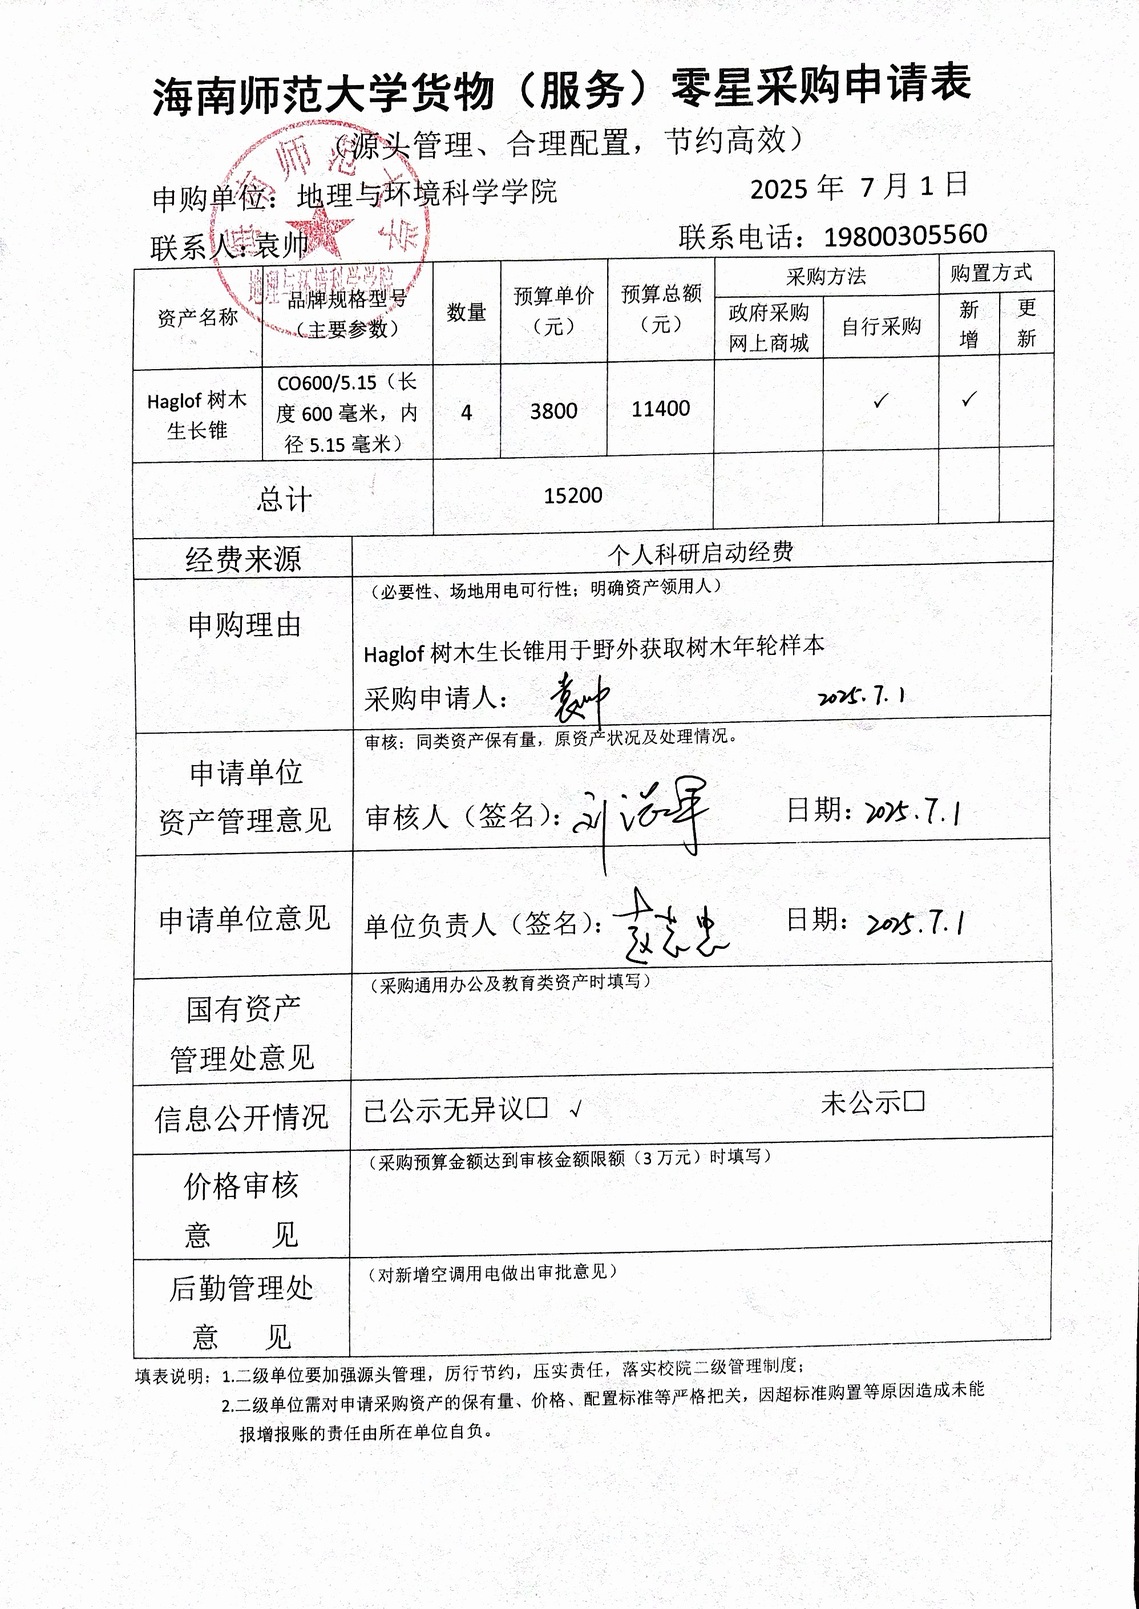 海南师范大学货物（服务）零星采购申请表
（源头管理、合理配置，节约高效）
申购单位：地理与环境科学学院 2025 年 7 月 1 日
联系人：袁帅 联系电话：19800305560
海南师范大学
地理与环境科学学院
资产名称 品牌规格型号（主要参数） 数量 预算单价（元） 预算总额（元） 采购方法 购置方式
政府采购网上商城 自行采购 新增 更新
Haglof 树木生长锥 CO600/5.15（长度 600 毫米，内径 5.15 毫米） 4 3800 11400 ✓ ✓
总计 15200
经费来源 个人科研启动经费
申购理由 （必要性、场地用电可行性；明确资产领用人）
Haglof 树木生长锥用于野外获取树木年轮样本
采购申请人： 袁帅 2025.7.1
申请单位
资产管理意见
审核：同类资产保有量，原资产状况及处理情况。
审核人（签名）： 日期：2025.7.1
申请单位意见 单位负责人（签名）： 赵志忠 日期：2025.7.1
国有资产
管理处意见
（采购通用办公及教育类资产时填写）
信息公开情况 已公示无异议□ √ 未公示□
价格审核
意 见
（采购预算金额达到审核金额限额（3 万元）时填写）
后勤管理处
意 见
（对新增空调用电做出审批意见）
填表说明：1.二级单位要加强源头管理，厉行节约，压实责任，落实校院二级管理制度；
2.二级单位需对申请采购资产的保有量、价格、配置标准等严格把关，因超标准购置等原因造成未能
报增报账的责任由所在单位自负。